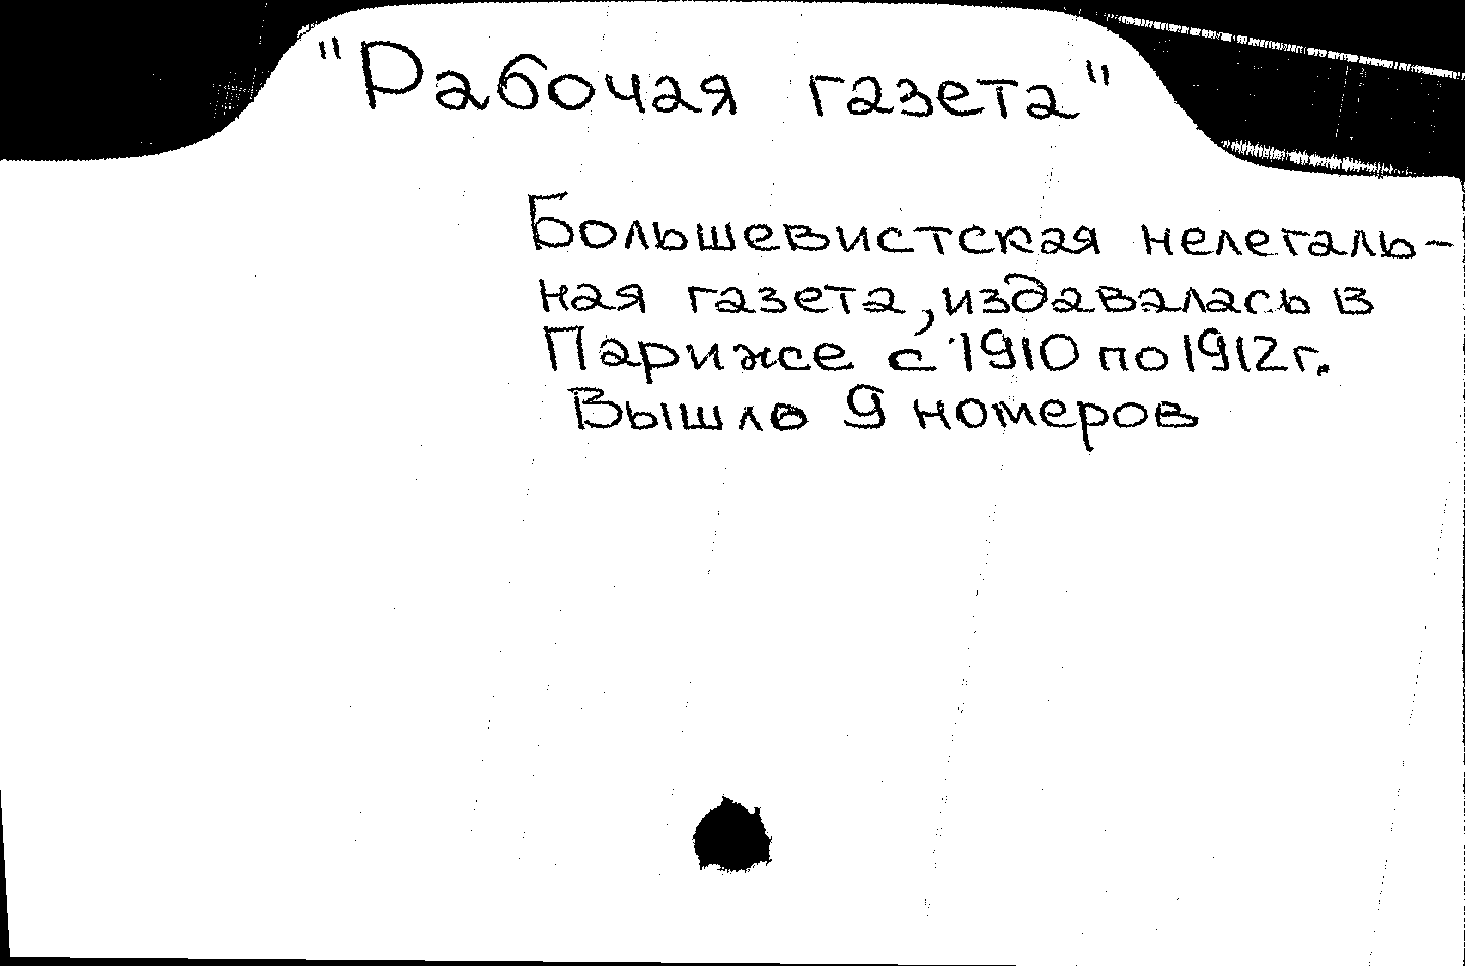 "Рабочая газета"
Большевистская нелегаль-
ная газета, издавалась в
Париже с 1910 по 1912 г.
Вышло 9 номеров